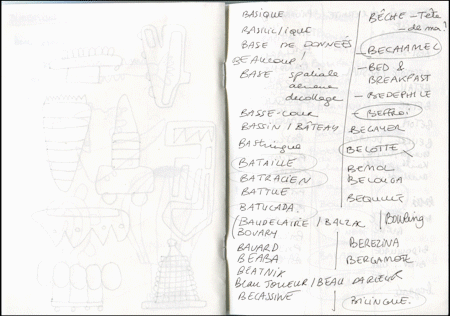 BASIQUE
BASE DE DONNÉES
BEAUCOUP!
BASE spatiale
aérienne
décollage
BASSE-COUR
BASSIN / BÂTEAU
Bastringue
BATAILLE
BATRACIEN
BATTUE
BATUCADA
BAUDELAIRE / BALZAC
BOVARY
BAVARD
BEABA
BEATNIK
BEAU JOUEUR / BEAU PARLEUR
BECASSINE
BÊCHE - Tête
- de ma?
- BECHAMEL
- BED &
BREAKFAST
- BEDEPHILE
- BEFFROI
BEGAYER
BELOTTE
BEMOL
BELOUGA
BEQUILLE
Bowling
BEREZINA
BERGAMOTE
BILINGUE.